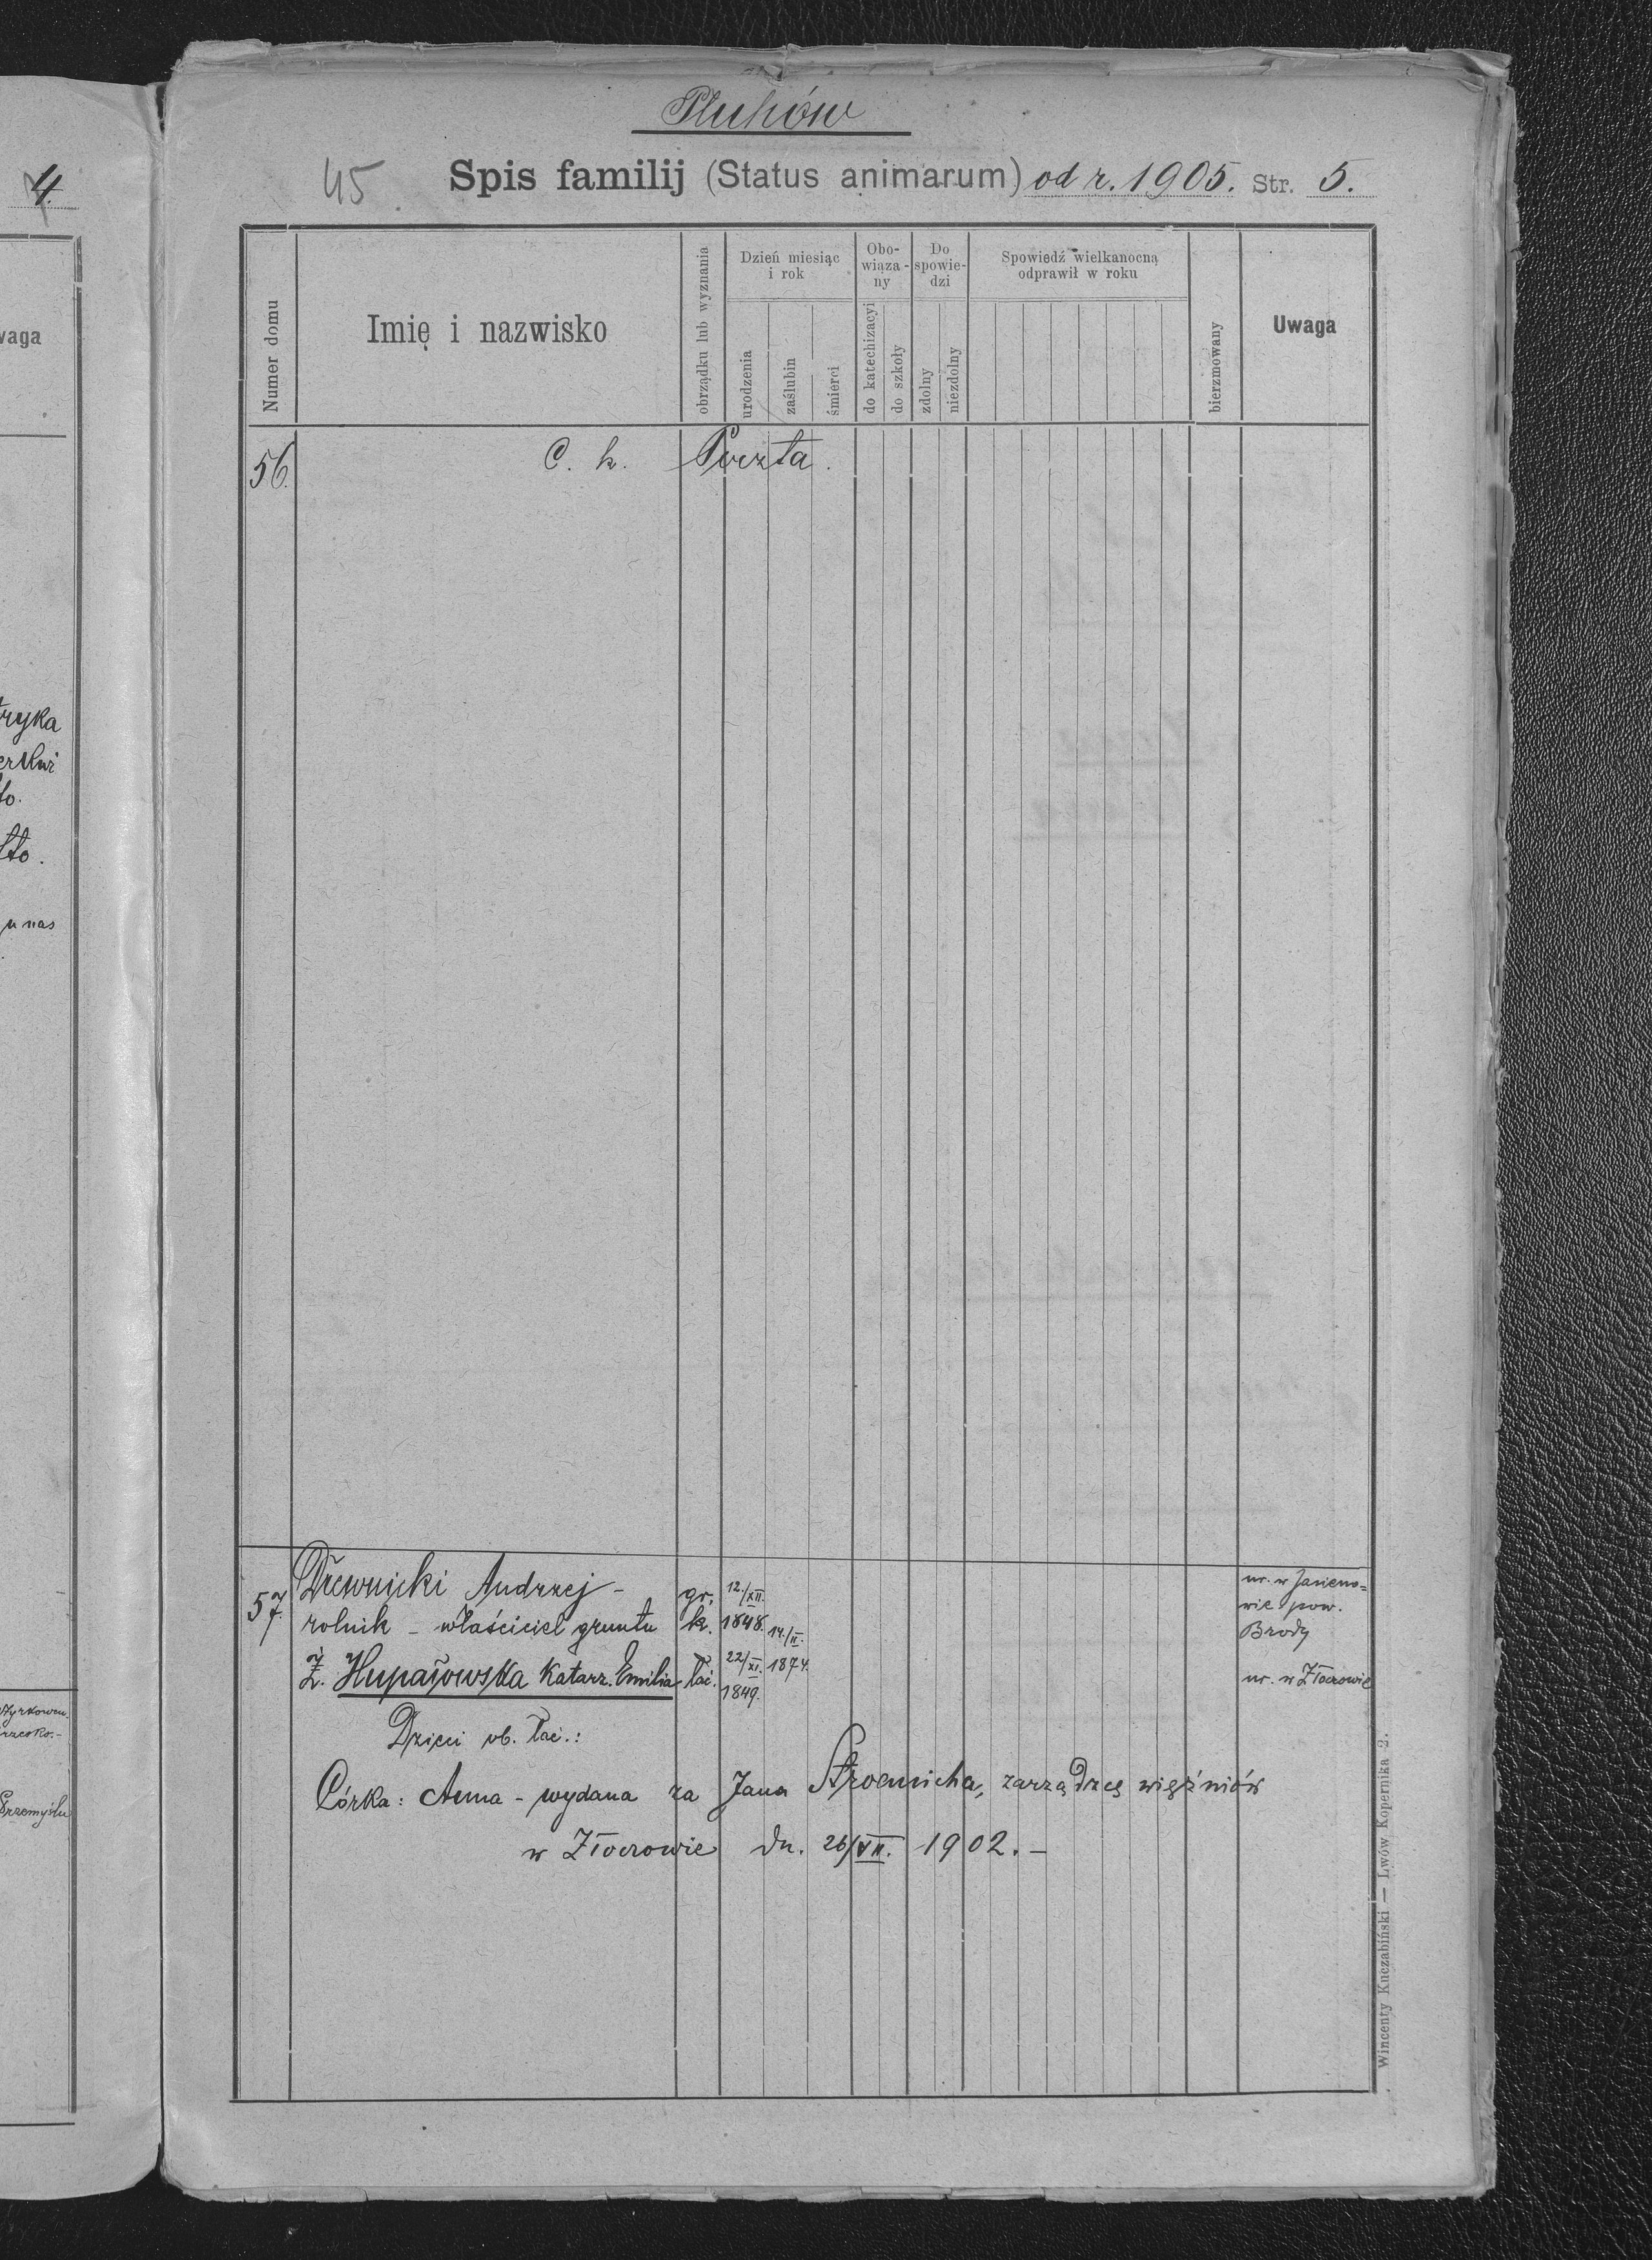 4.
waga
tryka
to.
u nas
Płuhów
45. Spis familij (Status animarum) od r. 1905. Str. 5.
Numer domu
Imię i nazwisko
obrządku lub wyznania
Dzień miesiąc
i rok
urodzenia
zaślubin
śmierci
Obo-
wiąza-
ny
do katechizacyi
do szkoły
Do
spowie-
dzi
zdolny
niezdolny
Spowiedź wielkanocną
odprawił w roku
bierzmowany
Uwaga
56. C. k. Poczta.
57. Drewnicki Andrzej - gr. 12./XII. ur. w Jasieno=
rolnik - właściciel gruntu k. 1848. 14./II. wie pow.
Brody
ż. Hupałowska Katarz. Emilia łać. 22/XI. 1874. ur. w Złoczowie
1849.
Dzieci ob. łać.:
Córka: Anna - wydana za Jana zarządzcę więźniów
w Złoczowie dn. 26/VII. 1902. -
Przemyślu
Wincenty Kuczabiński — Lwów Kopernika 2.